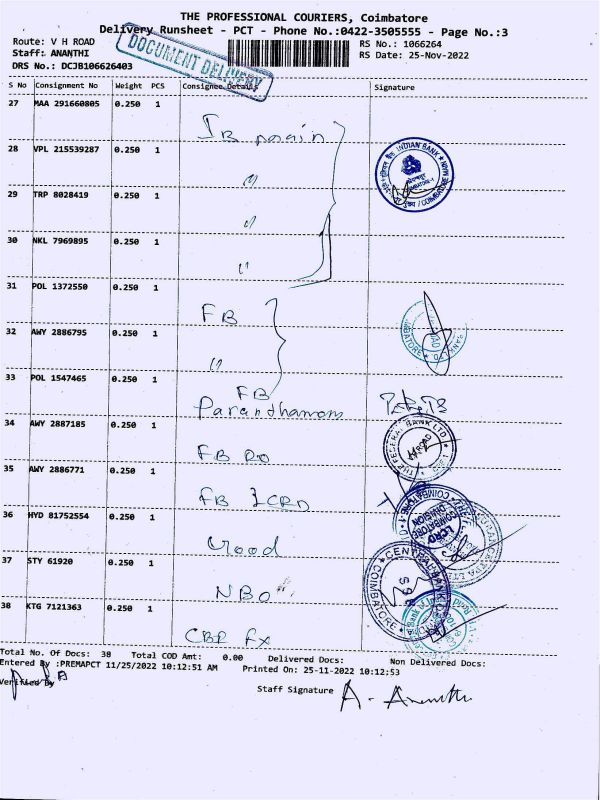 THE PROFESSIONAL COURIERS, Coimbatore
Delivery Runsheet - PCT - Phone No.:0422-3505555 - Page No.:3
Route: V H ROAD
RS No.: 1066264
Staff: ANANTHI
RS Date: 25-Nov-2022
DRS No.: DCJB106626403
DOCUMENT DELIVERY
S No Consignment No Weight PCS Consignee Details Signature
27 MAA 291660805 0.250 1
IB main
28 VPL 215539287 0.250 1 〃
INDIAN BANK
29 TRP 8028419 0.250 1 〃
30 NKL 7969895 0.250 1 〃
31 POL 1372550 0.250 1 FB
32 AWY 2886795 0.250 1 〃
33 POL 1547465 0.250 1 FB
Paranthamam
34 AWY 2887185 0.250 1 FB RO
THE FEDERAL BANK LTD.
35 AWY 2886771 0.250 1 FB LCRD
LCRD
COIMBATORE
DIVISION
36 HYD 81752554 0.250 1
37 STY 61920 0.250 1 NBO
CENTRAL BANK
COIMBATORE
38 KTG 7121363 0.250 1 CBR FX
Total No. Of Docs: 38 Total COD Amt: 0.00 Delivered Docs: Non Delivered Docs:
Entered By :PREMAPCT 11/25/2022 10:12:51 AM Printed On: 25-11-2022 10:12:53
Verified By
Staff Signature A. Ananthi